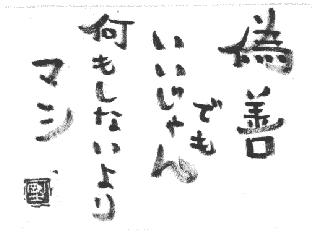 偽善
でも
いいじゃん
何もしないより
マシ